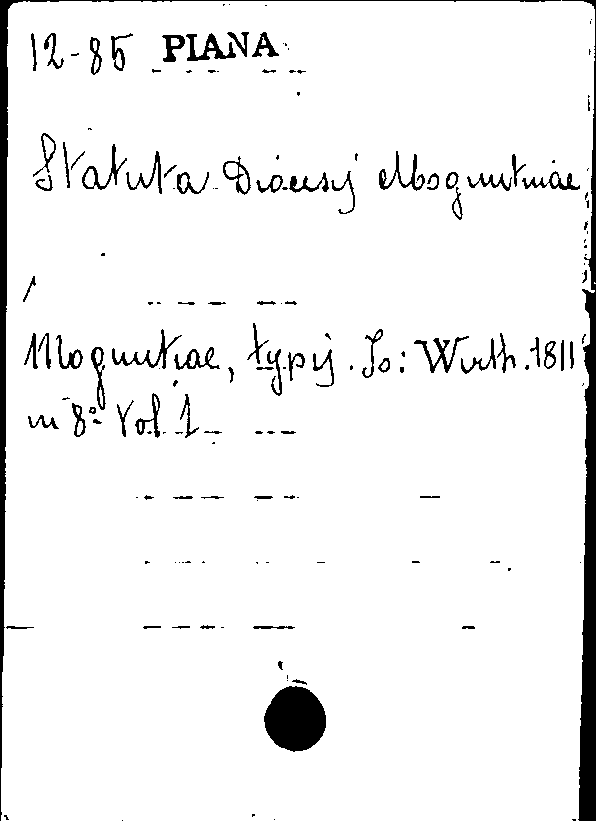 12-85 PIANA
Statuta Diœcesis Moguntinae
Moguntiae, typis. Jo: Wirth. 1811
in 8° Vol. 1